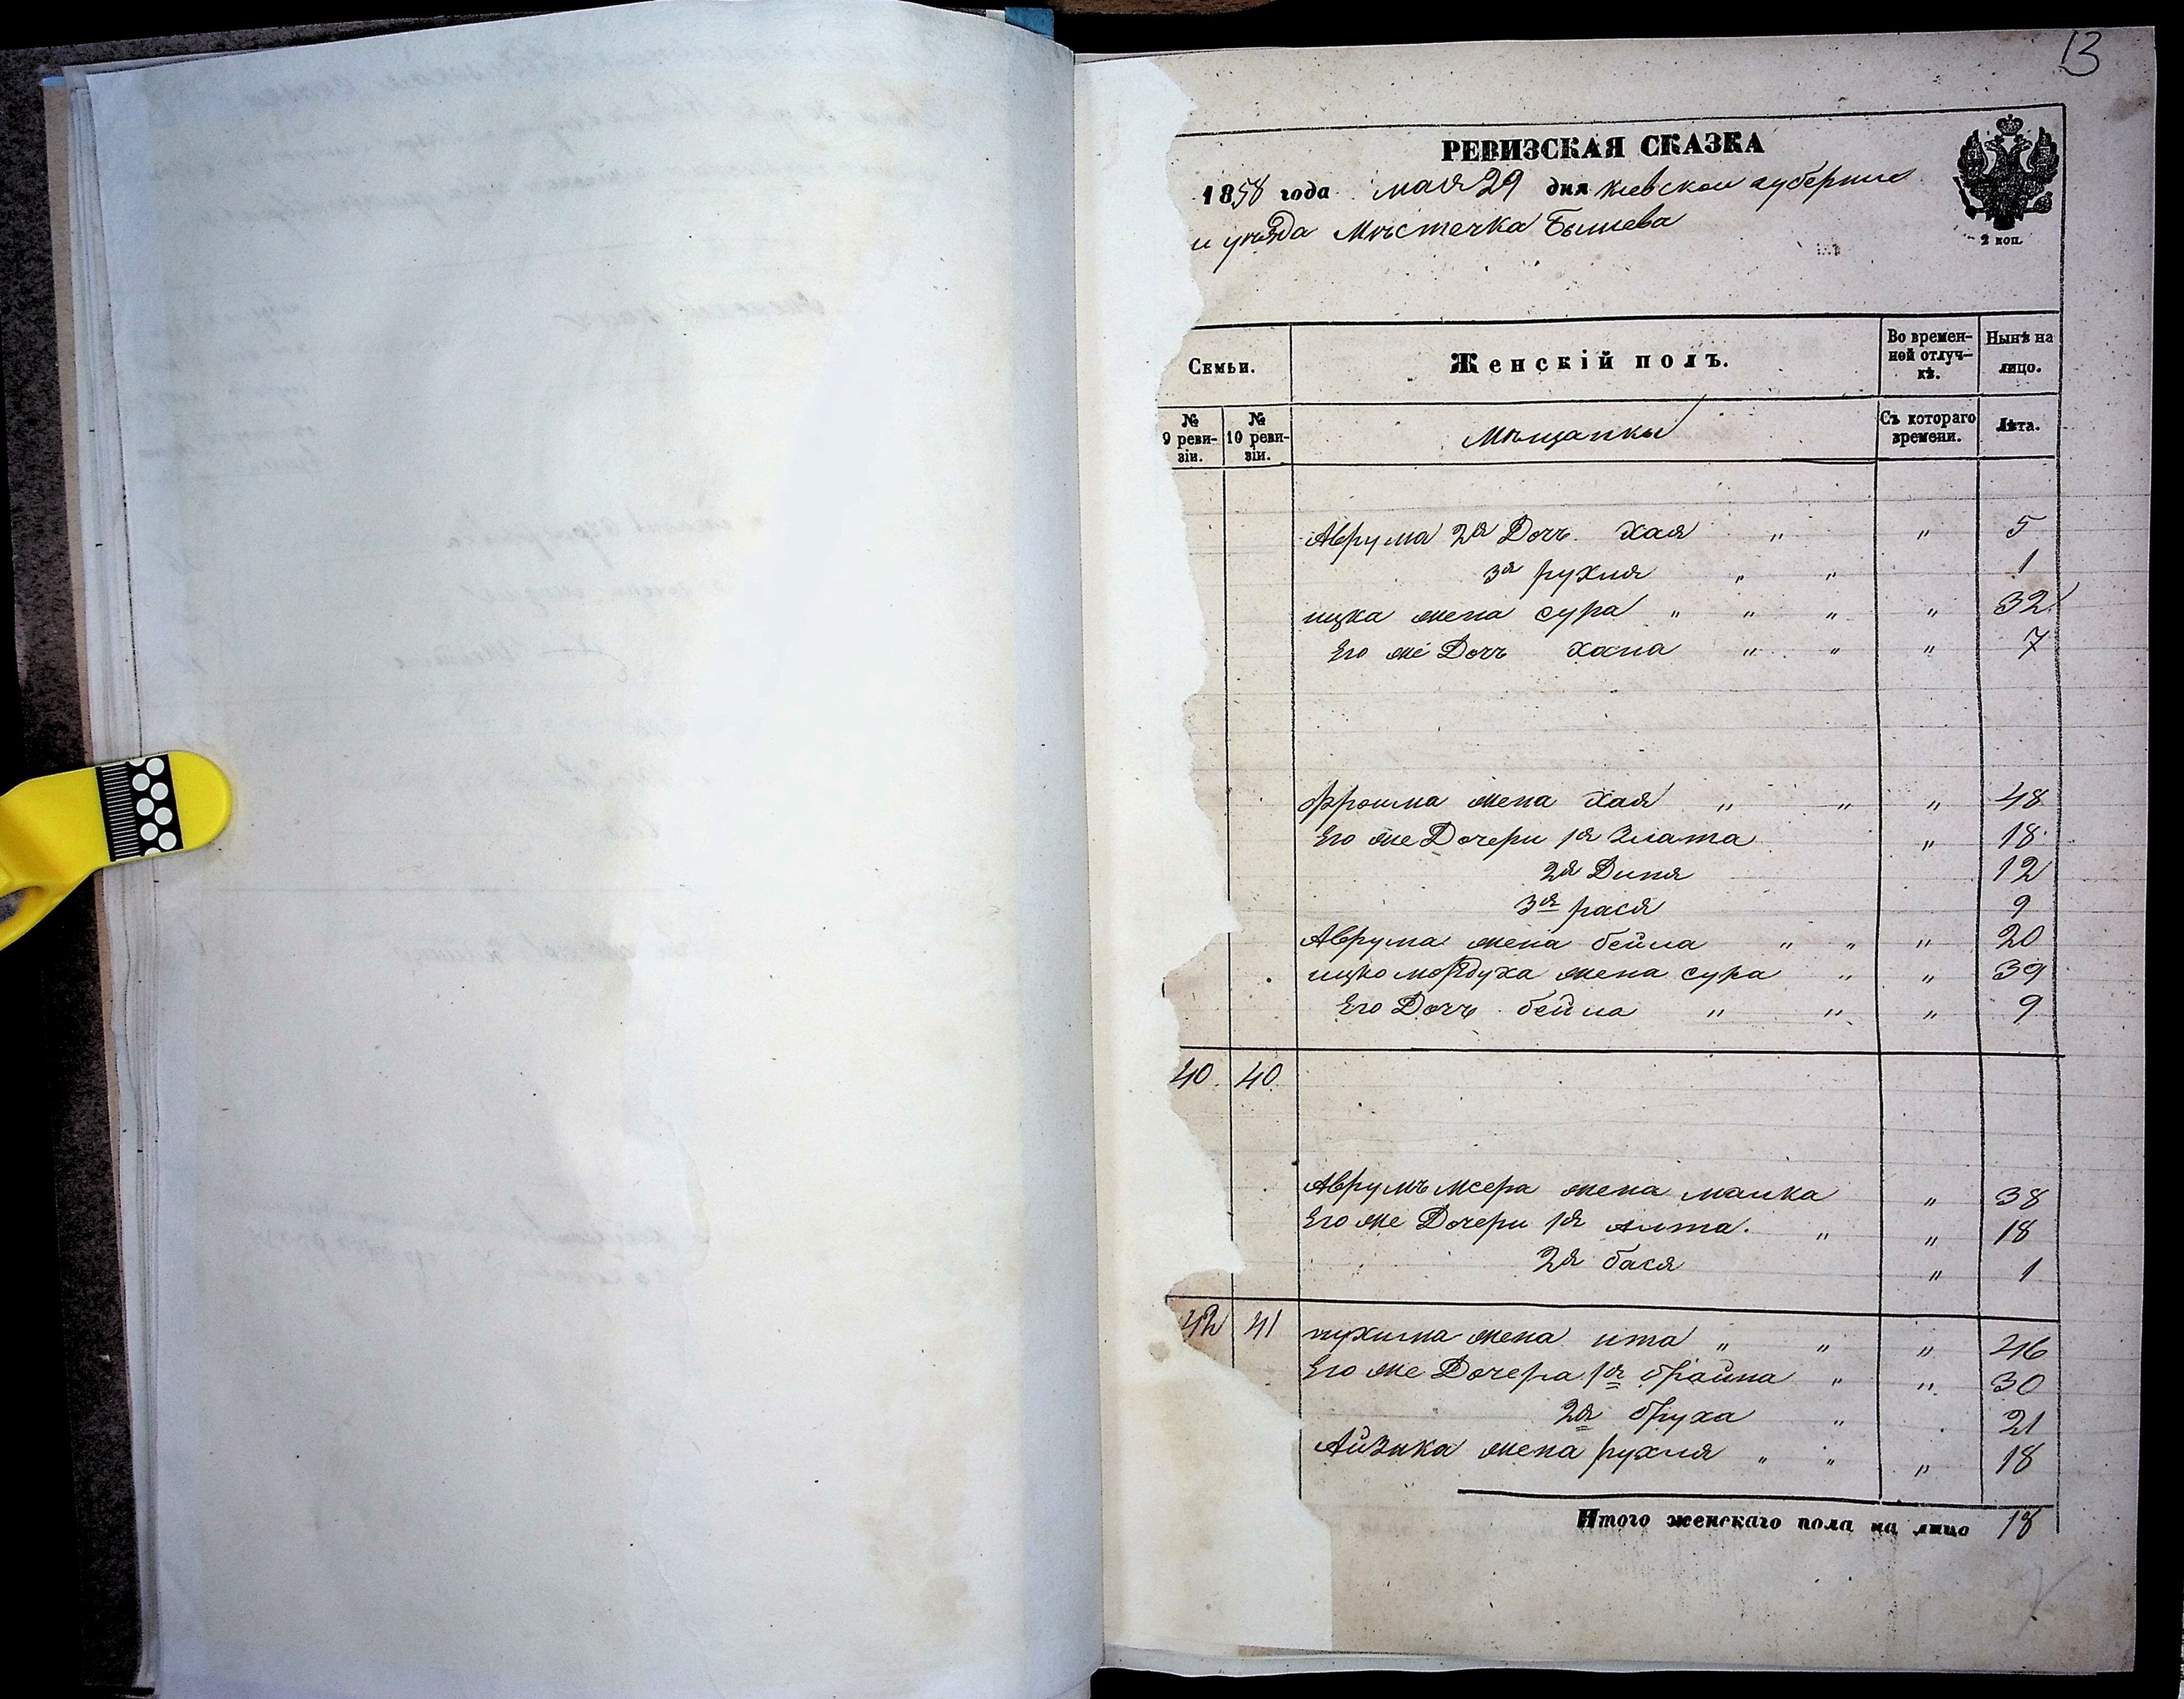 13
РЕВИЗСКАЯ СКАЗКА
1858 года мая 29 дня Киевской губернии
и уѣзда Мѣстечка Бышева
2 коп.
Семьи.
Женскій полъ.
Во временной отлучкѣ.
Нынѣ на лицо.
№ 9 ревизіи.
№ 10 ревизіи.
Мѣщанки
Съ котораго времени.
Лѣта.
Аврума 2я Дочь Хая " " 5
3я рухля " " 1
ицка жена сура " " " " 32
Его же Дочь хана " " " 7
фроима жена хая " " " 48
Его же Дочери 1я Злата " 18
2я Диня 12
3я рася 9
Аврума жена бейла " " " 20
ицко мордуха жена сура " " 39
Его Дочь бейла " " " 9
40 40
Аврумъ мсера жена малка " 38
Его же Дочери 1я алта " " 18
2я бася " 1
42 41 нухима жена ита " " " 46
Его же Дочера 1я брайна " " 30
2я бруха " 21
Айзика жена рухля " " " 18
Итого женскаго пола на лицо 18